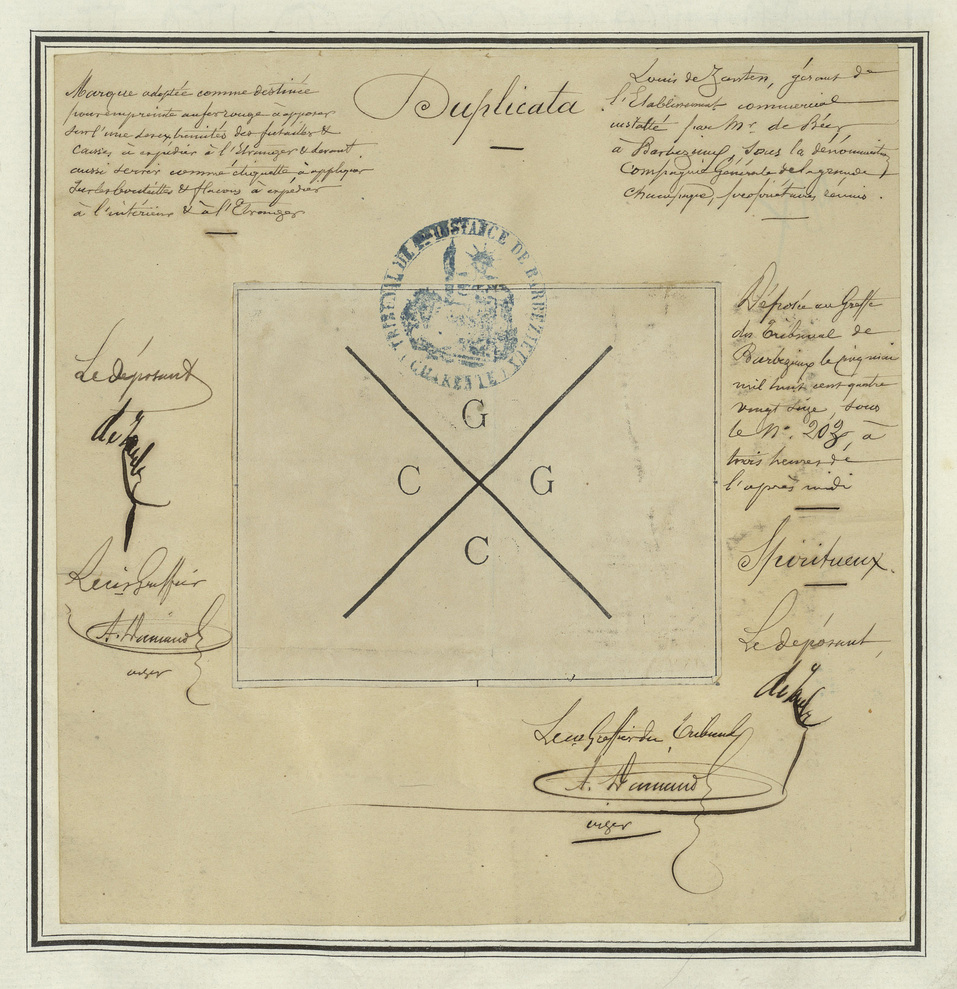 Duplicata
Marque adoptée comme destinée
pour empreinte au fer rouge à apposer
sur l'une des extrémités des futailles &
caisses à expédier à l'Etranger & devant
aussi servir comme étiquette à appliquer
sur les bouteilles & flacons à expédier
à l'intérieur & à l'Etranger
Louis de Zanten, gérant de
l'Etablissement commercial
installé par Mr. de
à Barbezieux, sous la dénomination
Compagnie Générale de la grande
champagne, propriétaires réunis.
TRIBUNAL DE 1re INSTANCE DE BARBEZIEUX
(CHARENTE)
G
C G
C
Déposée au Greffe
du Tribunal de
Barbezieux le
mil huit cent quatre
vingt, sous
le No. 203, à
trois heures de
l'après midi
Spiritueux.
Le déposant
Le Greffier
A.
Le déposant,
Le Greffier du Tribunal
A.